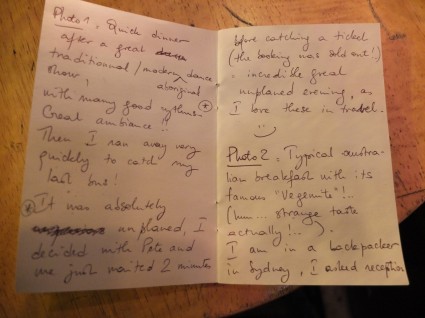 Photo 1. Quick dinner
after a great
traditionnal / modern dance
aboriginal
show!
with many good rythms
Great ambiance !!
Then I ran away very
quickly to catch my
last bus!
It was absolutely
unplaned, I
decided with Pete and
we just waited 2 minutes
before catching a ticket
(the booking was sold out!)
incredible great
unplaned evening, as
I love these in travel.
Photo 2. Typical austra-
lian breakfast with its
famous "Vegemite"!..
(hum... strange taste
actually!..).
I am in a backpacker
in Sydney, I asked reception